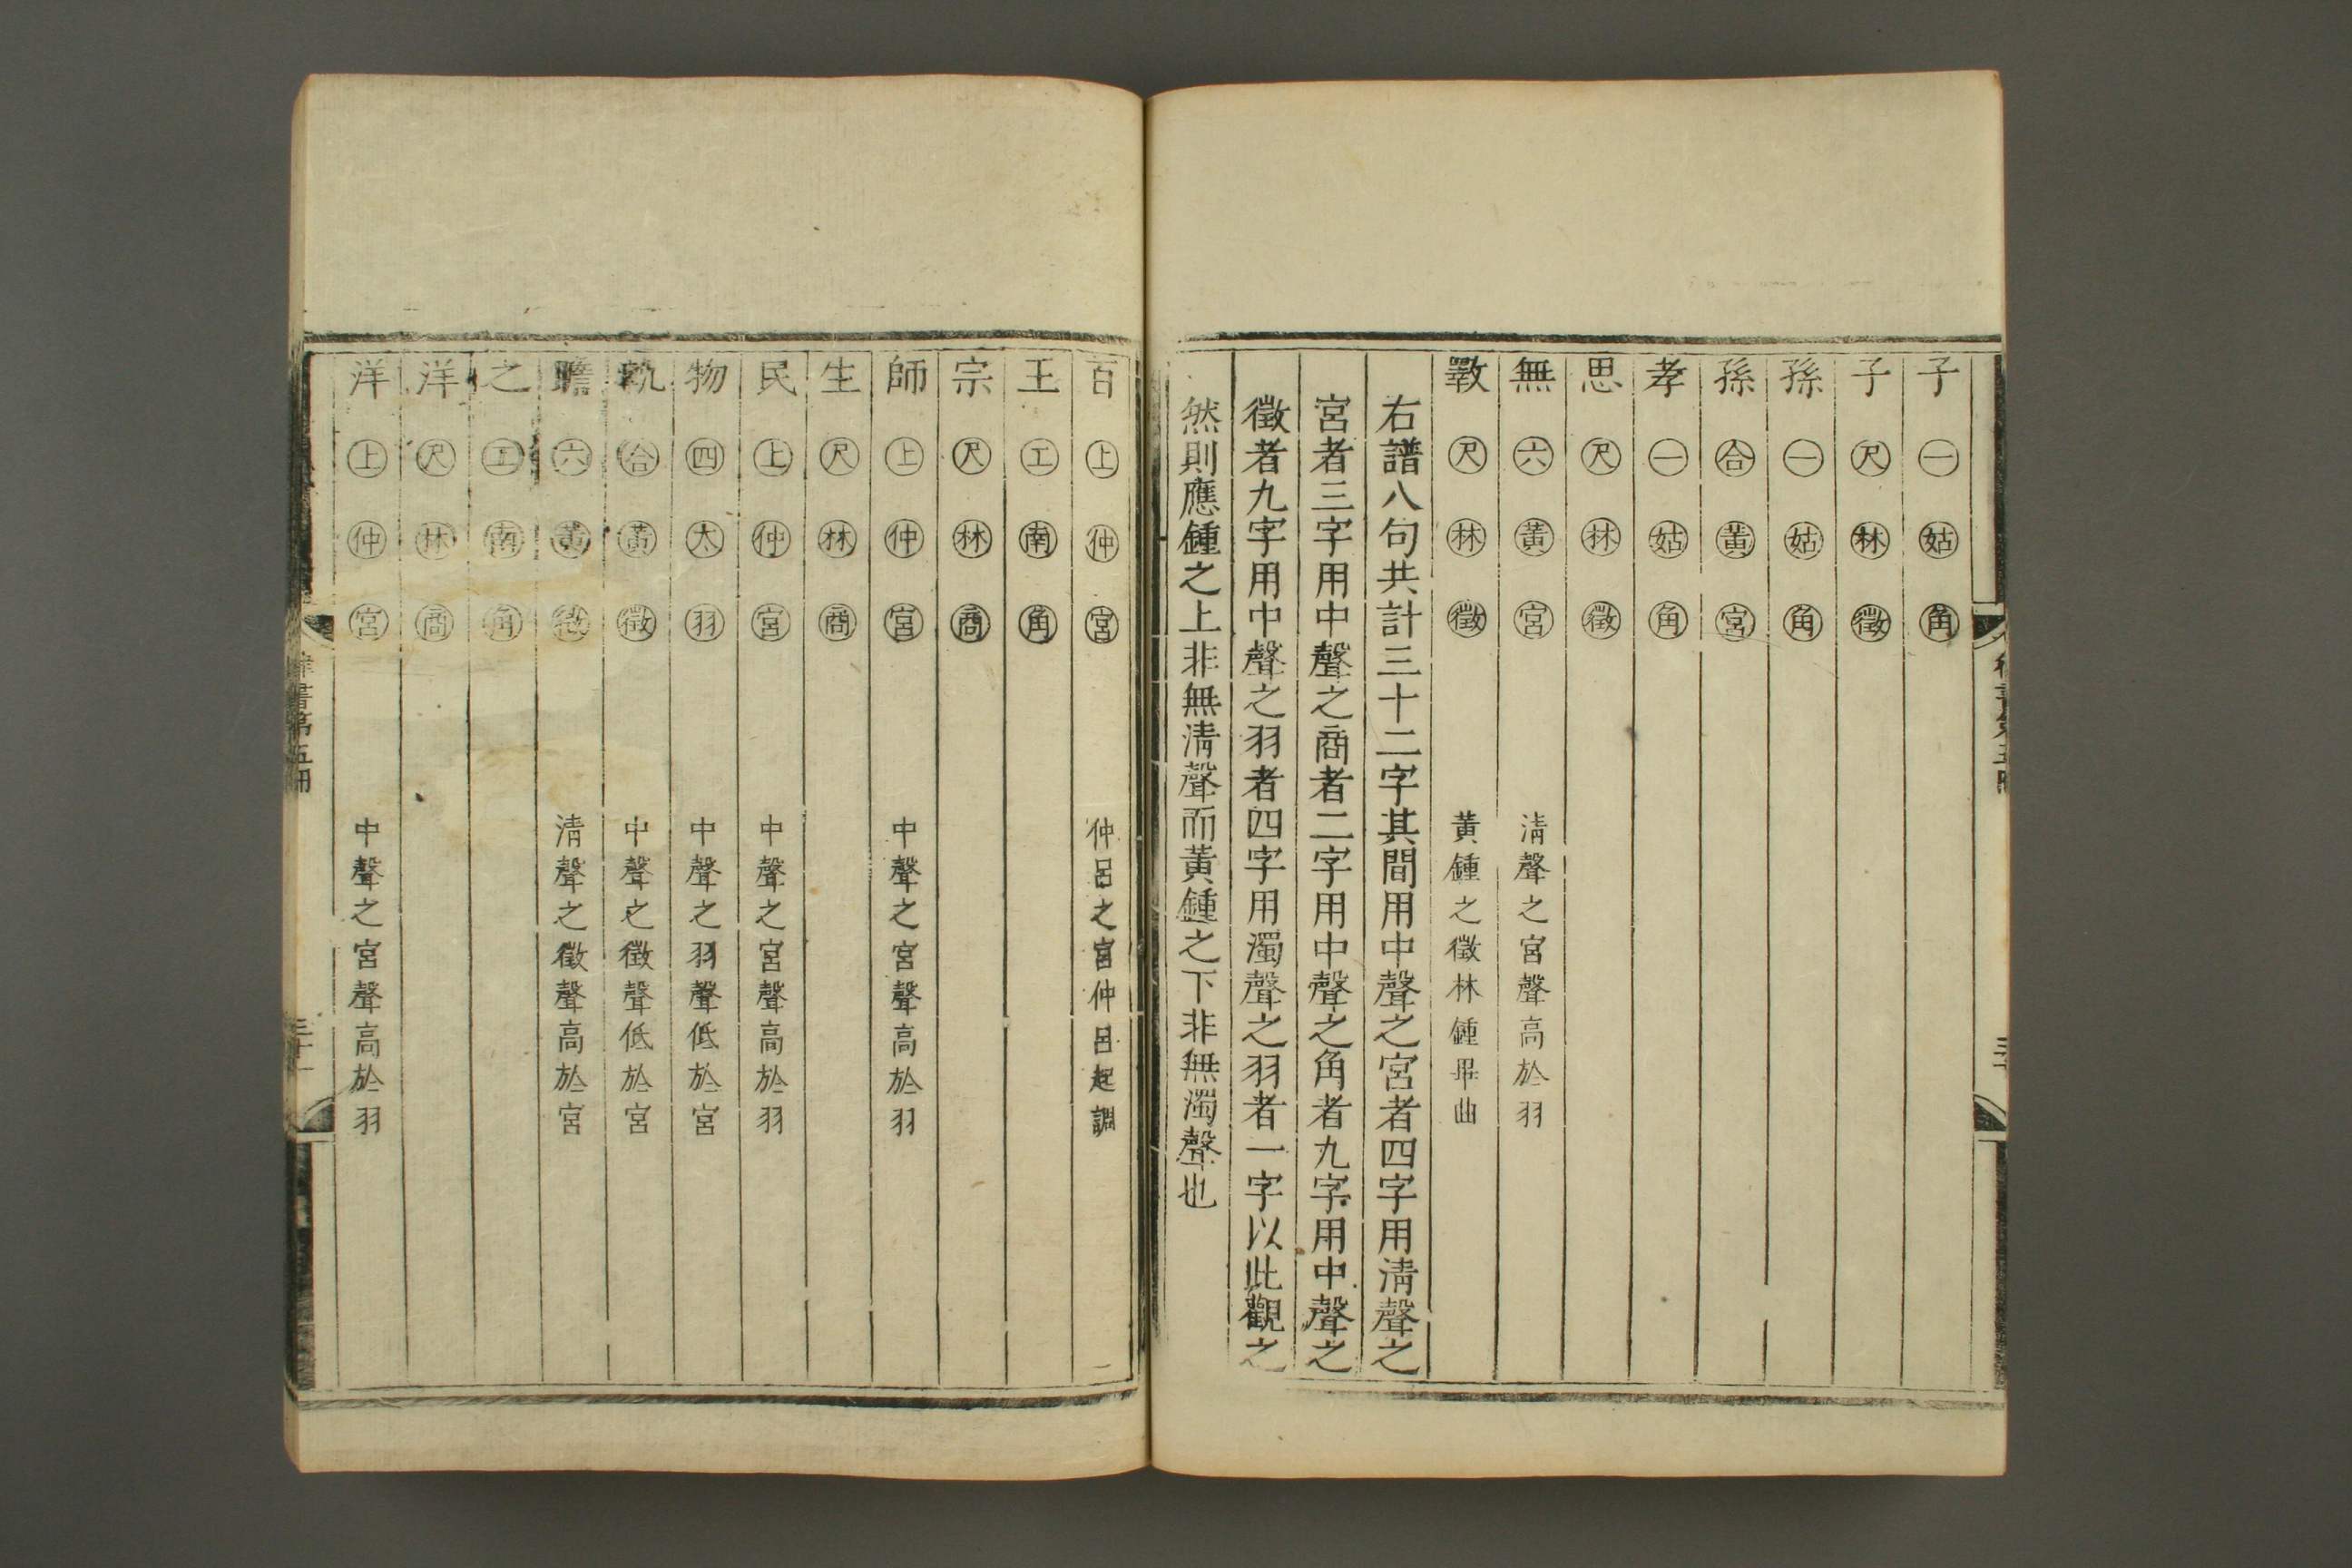 子 一 姑 角
子 尺 林 徵
孫 一 姑 角
孫 合 黃 宮
孝 一 姑 角
思 尺 林 徵
無 六 黃 宮 淸聲之宮聲高於羽
斁 尺 林 徵 黃鍾之徵林鍾畢曲
右譜八句共計三十二字其間用中聲之宮者四字用淸聲之
宮者三字用中聲之商者二字用中聲之角者九字用中聲之
徵者九字用中聲之羽者四字用濁聲之羽者一字以此觀之
然則應鍾之上非無淸聲而黃鍾之下非無濁聲也
百 上 仲 宮 仲呂之宮仲呂起調
王 工 南 角
宗 尺 林 商
師 上 仲 宮 中聲之宮聲高於羽
生 尺 林 商
民 上 仲 宮 中聲之宮聲高於羽
物 四 太 羽 中聲之羽聲低於宮
軌 合 黃 徵 中聲之徵聲低於宮
瞻 六 黃 徵 淸聲之徵聲高於宮
之 工 南 角
洋 尺 林 商
洋 上 仲 宮 中聲之宮聲高於羽
律書第五冊 三十一